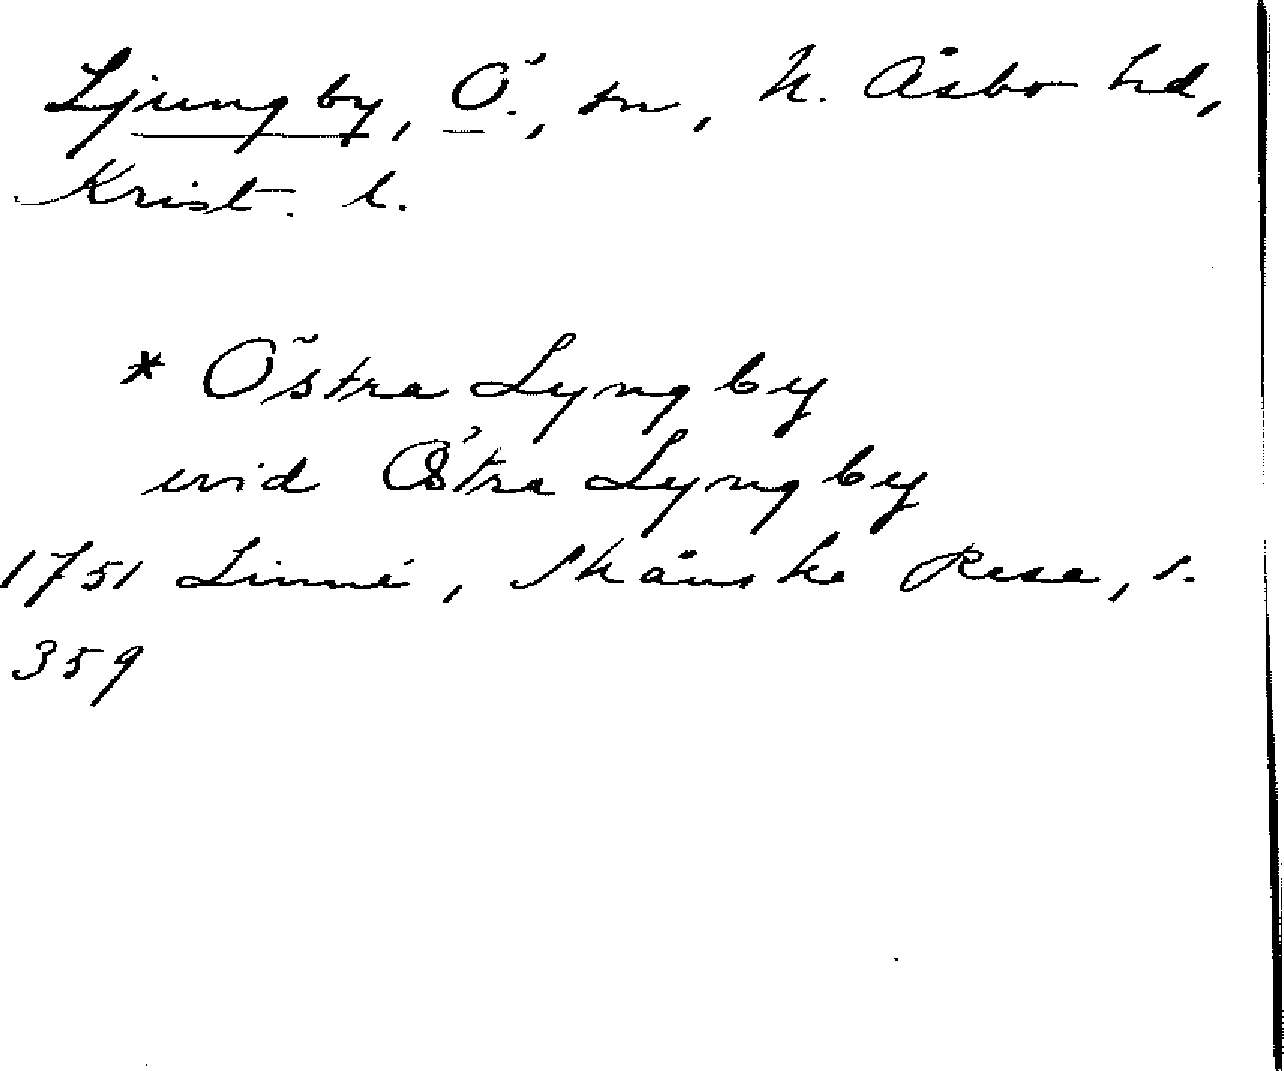 Ljungby, Ö., sn, N. Åsbo hd,
Krist. l.
* Östra Lyngby
wid Östra Lyngby
1751 Linné, Skånska Resa, s.
359